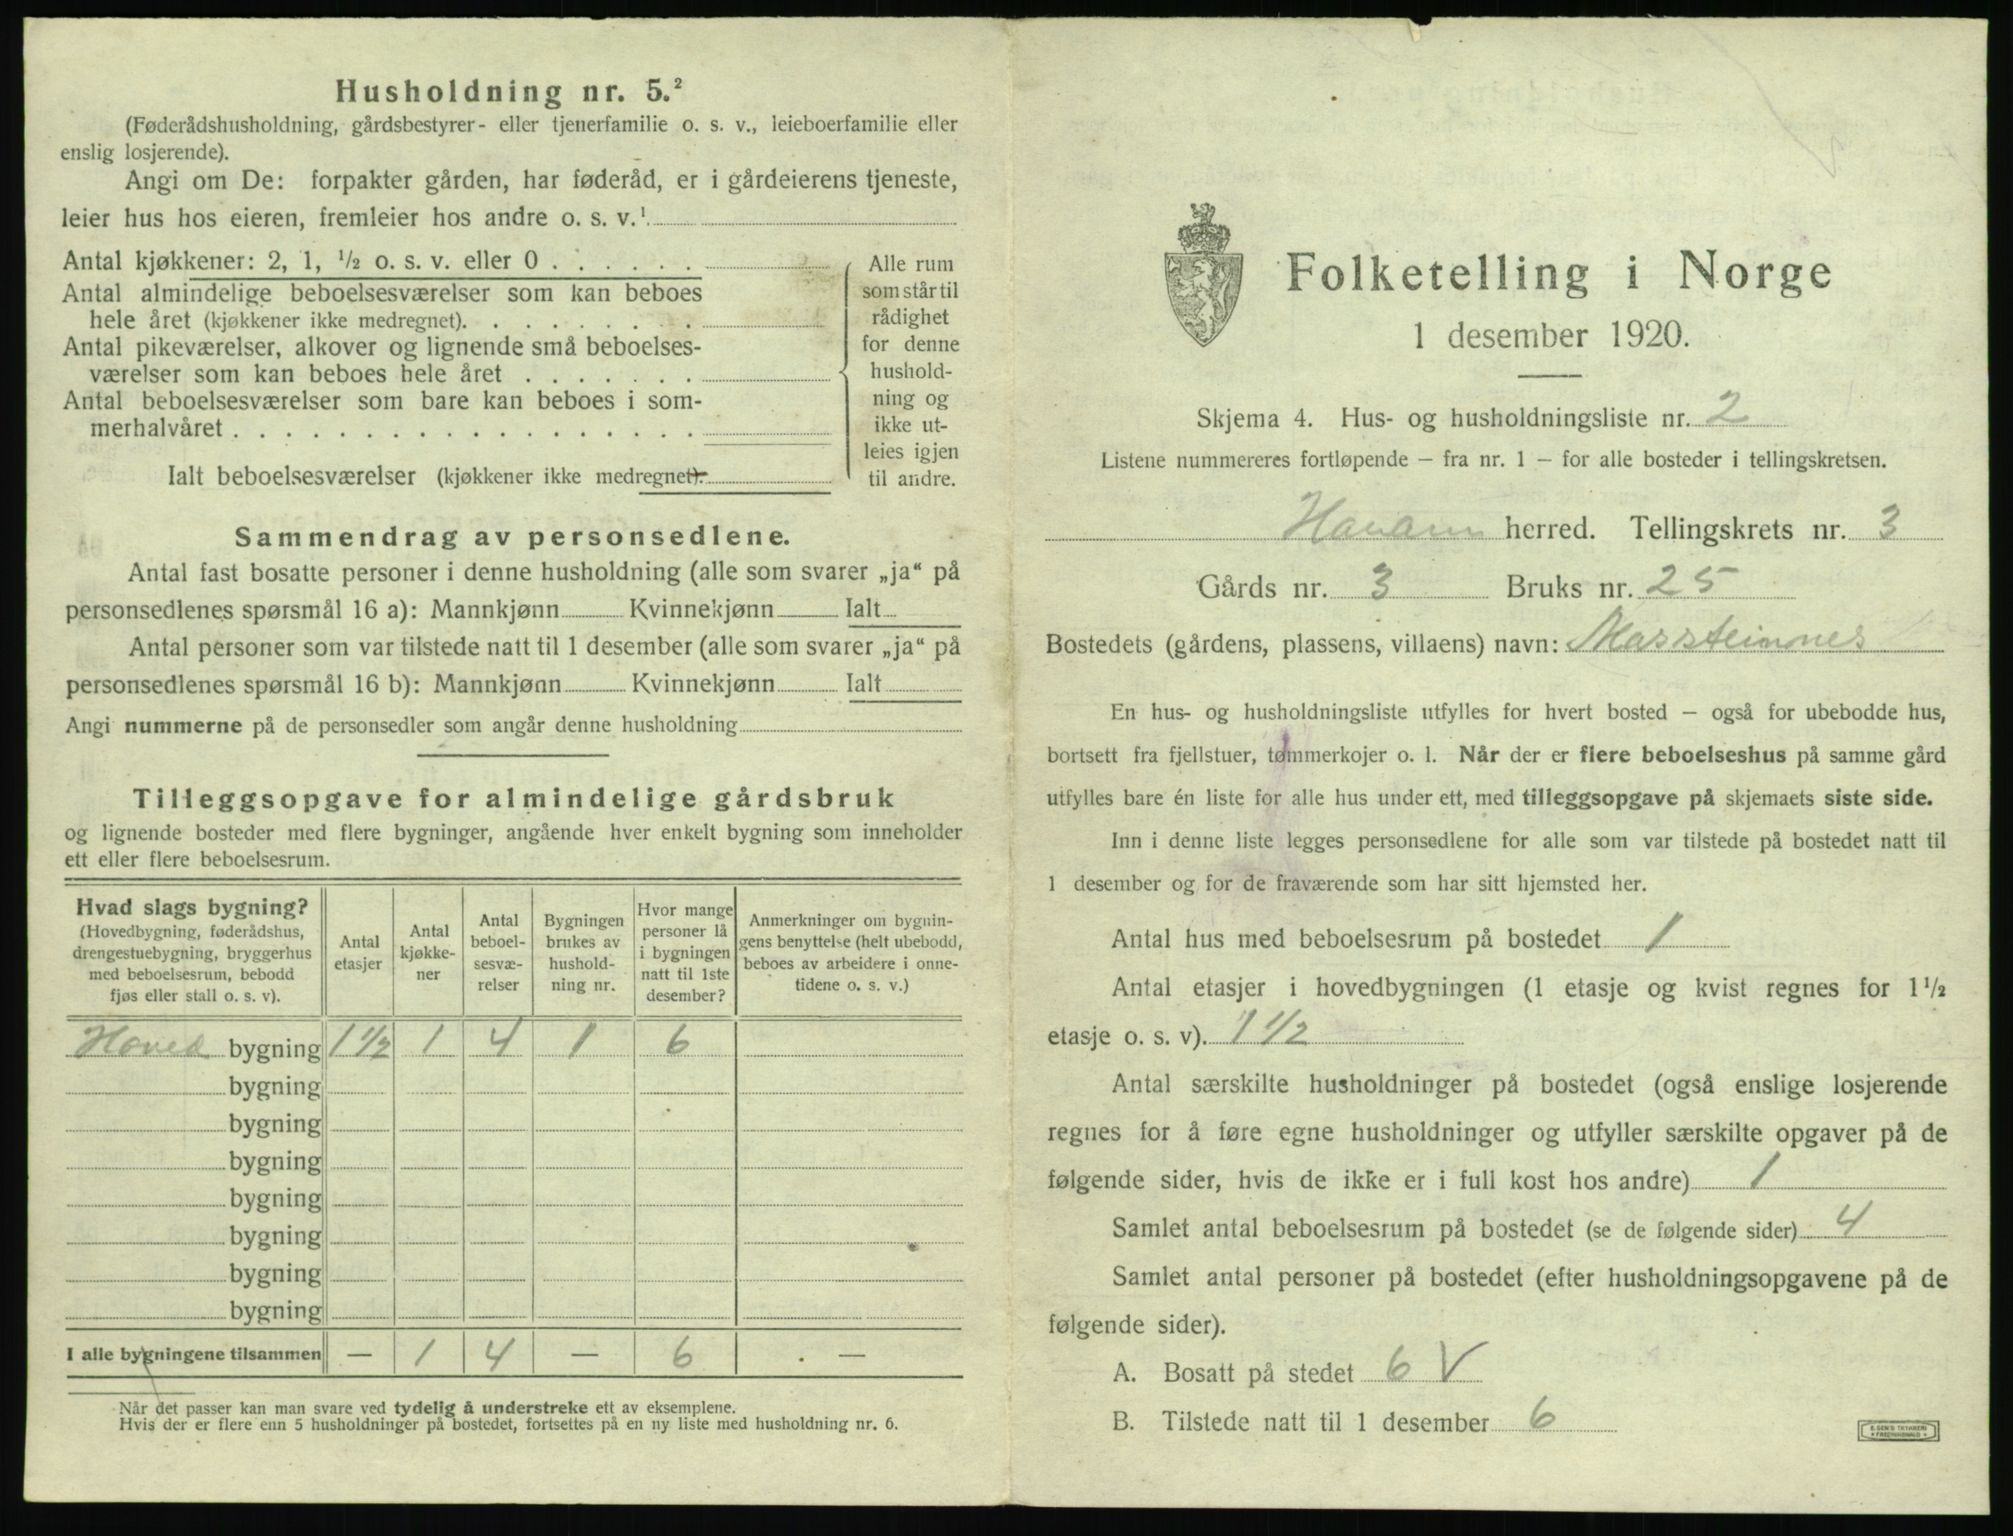 Husholdning nr. 5.²
(Føderådshusholdning, gårdsbestyrer- eller tjenerfamilie o. s. v., leieboerfamilie eller
enslig losjerende).
Angi om De: forpakter gården, har føderåd, er i gårdeierens tjeneste,
leier hus hos eieren, fremleier hos andre o. s. v.¹
Antal kjøkkener: 2, 1, ½ o. s. v. eller 0
Antal almindelige beboelsesværelser som kan beboes
hele året (kjøkkener ikke medregnet).
Antal pikeværelser, alkover og lignende små beboelses-
værelser som kan beboes hele året
Antal beboelsesværelser som bare kan beboes i som-
merhalvåret
Ialt beboelsesværelser (kjøkkener ikke medregnet).
Alle rum
som står til
rådighet
for denne
hushold-
ning og
ikke ut-
leies igjen
til andre.
Sammendrag av personsedlene.
Antal fast bosatte personer i denne husholdning (alle som svarer „ja“ på
personsedlenes spørsmål 16 a): Mannkjønn Kvinnekjønn Ialt
Antal personer som var tilstede natt til 1 desember (alle som svarer „ja“ på
personsedlenes spørsmål 16 b): Mannkjønn Kvinnekjønn Ialt
Angi nummerne på de personsedler som angår denne husholdning
Tilleggsopgave for almindelige gårdsbruk
og lignende bosteder med flere bygninger, angående hver enkelt bygning som inneholder
ett eller flere beboelsesrum.
Hvad slags bygning?
(Hovedbygning, føderådshus,
drengestuebygning, bryggerhus
med beboelsesrum, bebodd
fjøs eller stall o. s. v).
Antal
etasjer
Antal
kjøkke-
ner
Antal
beboel-
sesvæ-
relser
Bygningen
brukes av
hushold-
ning nr.
Hvor mange
personer lå
i bygningen
natt til 1ste
desember?
Anmerkninger om bygnin-
gens benyttelse (helt ubebodd,
beboes av arbeidere i onne-
tidene o. s. v.)
Hoved bygning 1 1/2 1 4 1 6
bygning
bygning
bygning
bygning
bygning
bygning
bygning
I alle bygningene tilsammen — 1 4 — 6 —
Når det passer kan man svare ved tydelig å understreke ett av eksemplene.
Hvis der er flere enn 5 husholdninger på bostedet, fortsettes på en ny liste med husholdning nr. 6.
Folketelling i Norge
1 desember 1920.
Skjema 4. Hus- og husholdningsliste nr. 2
Listene nummereres fortløpende – fra nr. 1 – for alle bosteder i tellingskretsen.
herred. Tellingskrets nr. 3
Gårds nr. 3 Bruks nr. 25
Bostedets (gårdens, plassens, villaens) navn: Massteinnes
En hus- og husholdningsliste utfylles for hvert bosted – også for ubebodde hus,
bortsett fra fjellstuer, tømmerkojer o. l. Når der er flere beboelseshus på samme gård
utfylles bare én liste for alle hus under ett, med tilleggsopgave på skjemaets siste side.
Inn i denne liste legges personsedlene for alle som var tilstede på bostedet natt til
1 desember og for de fraværende som har sitt hjemsted her.
Antal hus med beboelsesrum på bostedet 1
Antal etasjer i hovedbygningen (1 etasje og kvist regnes for 1½
etasje o. s. v). 1 1/2
Antal særskilte husholdninger på bostedet (også enslige losjerende
regnes for å føre egne husholdninger og utfyller særskilte opgaver på de
følgende sider, hvis de ikke er i full kost hos andre) 1
Samlet antal beboelsesrum på bostedet (se de følgende sider) 4
Samlet antal personer på bostedet (efter husholdningsopgavene på de
følgende sider).
A. Bosatt på stedet 6 V
B. Tilstede natt til 1 desember 6